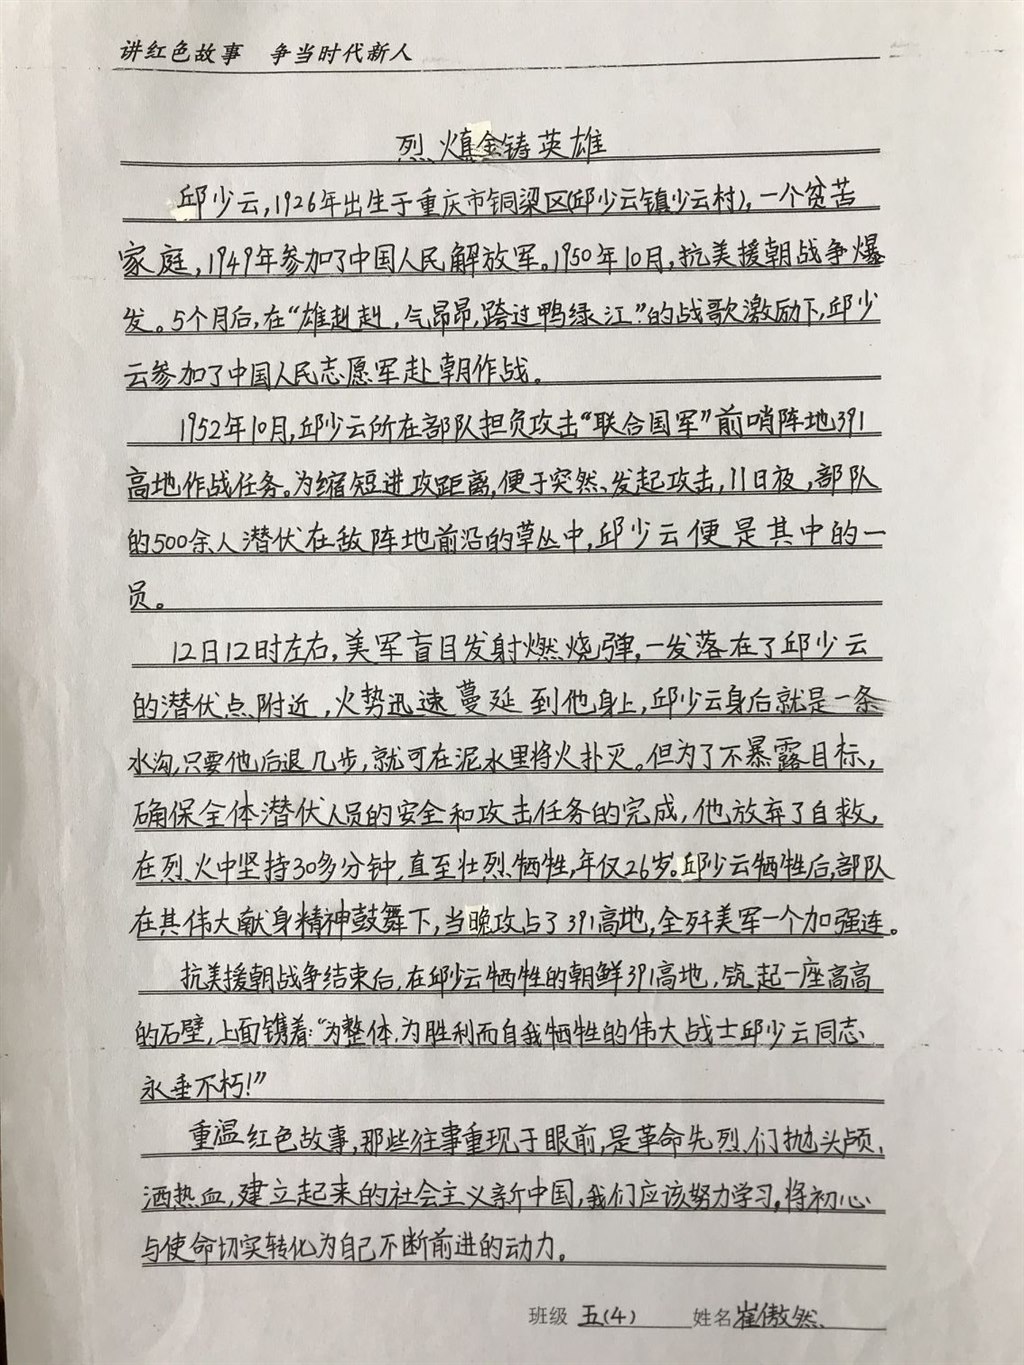 讲红色故事 争当时代新人
烈火熔金铸英雄
邱少云,1926年出生于重庆市铜梁区(邱少云镇少云村),一个贫苦
家庭,1949年参加了中国人民解放军。1950年10月,抗美援朝战争爆
发。5个月后,在“雄赳赳,气昂昂,跨过鸭绿江”的战歌激励下,邱少
云参加了中国人民志愿军赴朝作战。
1952年10月,邱少云所在部队担负攻击“联合国军”前哨阵地391
高地作战任务。为缩短进攻距离,便于突然、发起攻击,11日夜,部队
的500余人潜伏在敌阵地前沿的草丛中,邱少云便是其中的一
员。
12日12时左右,美军盲目发射燃烧弹,一发落在了邱少云
的潜伏点附近,火势迅速蔓延到他身上,邱少云身后就是一条
水沟,只要他后退几步,就可在泥水里将火扑灭。但为了不暴露目标,
确保全体潜伏人员的安全和攻击任务的完成,他放弃了自救,
在烈火中坚持30多分钟,直至壮烈牺牲,年仅26岁。邱少云牺牲后,部队
在其伟大献身精神鼓舞下,当晚攻占了391高地,全歼美军一个加强连。
抗美援朝战争结束后,在邱少云牺牲的朝鲜391高地,筑起一座高高
的石壁,上面镌着:“为整体、为胜利而自我牺牲的伟大战士邱少云同志
永垂不朽!”
重温红色故事,那些往事重现于眼前,是革命先烈们抛头颅,
洒热血,建立起来的社会主义新中国,我们应该努力学习,将初心
与使命切实转化为自己不断前进的动力。
班级 五(4) 姓名 崔傲然